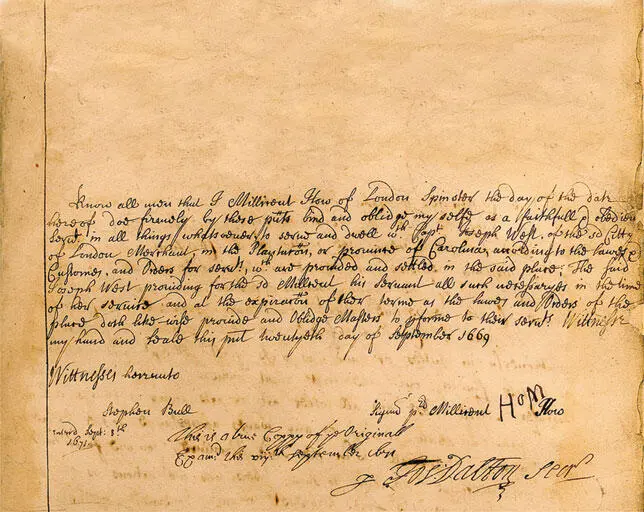 Know all men that I Millicent How of London Spinster the day of the date
hereof doe firmely by these pnts bind and oblidge my selfe as a faithfull & obedient
Servt in all things whatsoever, to serve and dwell wth Capt. Joseph West, of the sd Citty
of London Merchant, in the Plantation, or province of Carolina, according to the lawes,
Customes, and Orders for servts wch are provided and setled, in the said place. The said
Joseph West providing for the sd Millicent his servant all such necessaryes in the time
of her service, and at the expiration of ther terme as the lawes and Orders of the
place doth like wise provide and Oblidge Masters to performe to their servts. Wittnesse
my hand and seale this pnt twentyeth day of September 1669
Wittnesses hereunto
Stephen Bull
Millicent HoM How
Sept: 8th
1671
This is a true Coppy of ye Originall
Examd this September 1671
Jos Dalton Secry